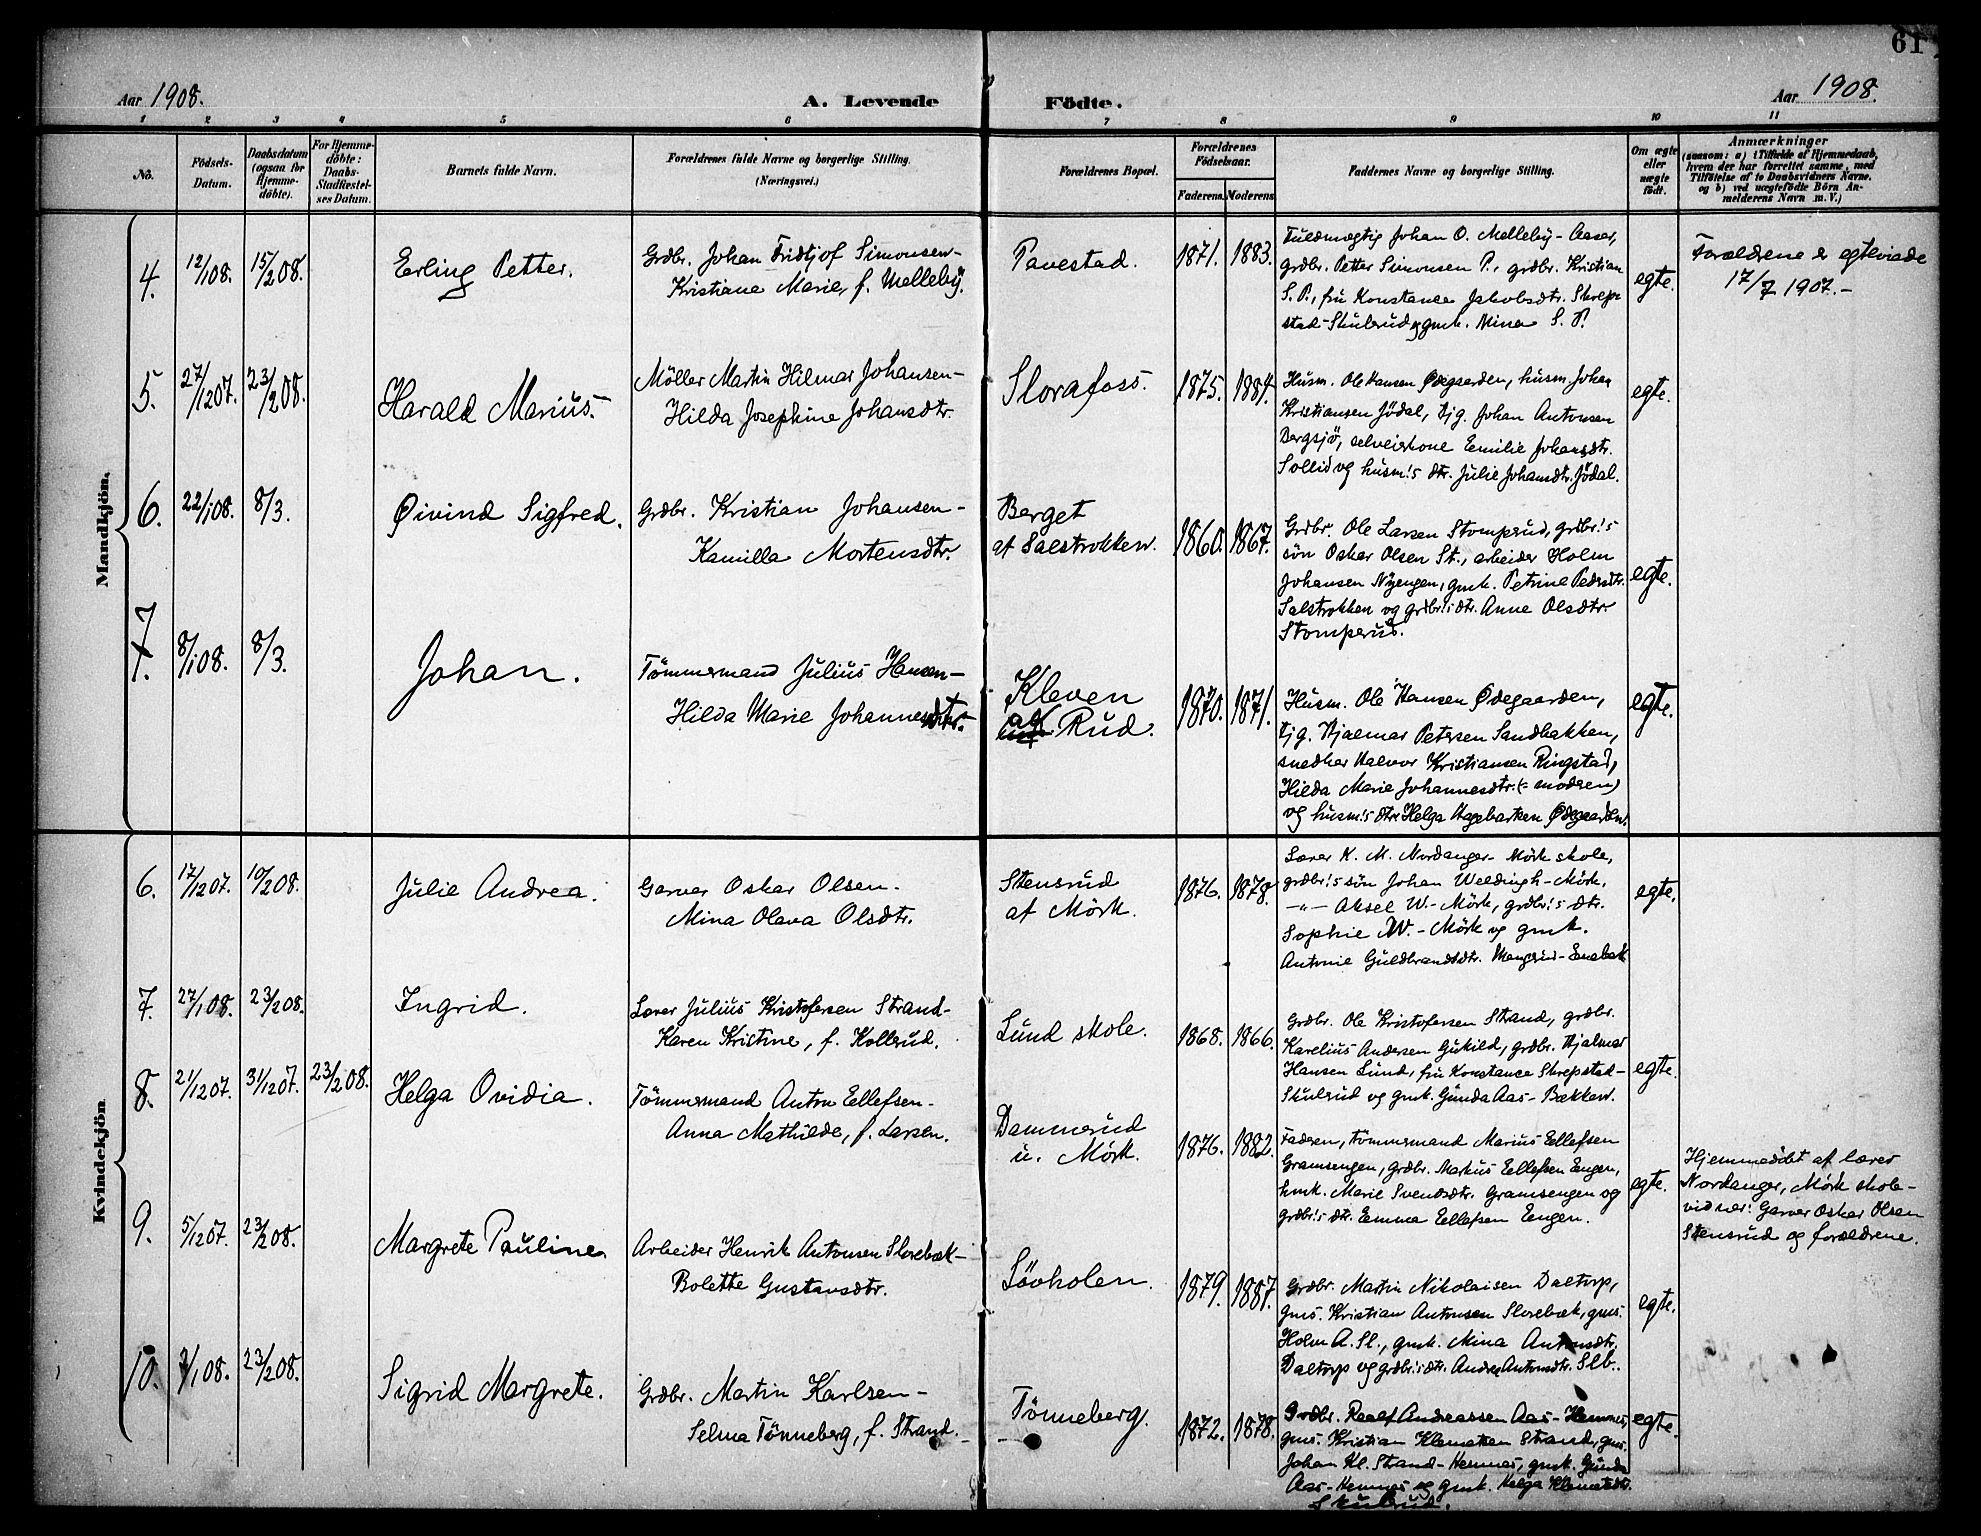 61
Aar 1908.
A. Levende Födte.
Aar 1908.
1 2 3 4 5 6 7 8 9 10 11
No.
Födsels-Datum.
Daabsdatum (ogsaa for Hjemmedöbte).
For Hjemmedöbte: Daabs-Stadfæstelses Datum.
Barnets fulde Navn.
Forældrenes fulde Navne og borgerlige Stilling.
(Næringsvei.)
Forældrenes Bopæl.
Forældrenes Födselsaar.
Faderens. Moderens.
Faddernes Navne og borgerlige Stilling.
Om ægte eller uægte födt.
Anmærkninger
(saasom: a) i Tilfælde af Hjemmedaab,
hvem der har forrettet samme, med
Tilföielse af to Daabsvidners Navne,
og b) ved uægtefödte Börn An-
melderens Navn m. V.)
Mandkjön.
4.
12/1 08.
15/2 08.
Erling Petter.
Grdbr. Johan Fridtjof Simonsen-
Kristiane Marie, f. Melleby.
Pavestad.
1871. 1883.
Fuldmægtig Johan O. Melleby- Aaser,
grdbr. Petter Simonsen P., grdbr. Kristian
S. P., fru Konstance Jakobsdtr. Skrep-
stad-Skulerud og gmk. Mina S. P.
egte.
Forældrene er egteviede
17/7 1907.-
5.
27/12 07.
23/2 08.
Harald Marius.
Möller Martin Hilmar Johansen-
Hilda Josephine Johansdtr.
Slorafoss.
1875. 1884.
Husm. Ole Hansen Ødegaarden, husm. Johan
Kristiansen Jödal, tjg. Johan Antonsen
Bergsjö, selveierkone Emilie Johansdtr.
Sollid og husm!s dtr. Julie Johansdtr. Jödal.
egte.
6.
22/1 08.
8/3.
Øivind Sigfred.
Grdbr. Kristian Johansen-
Kamilla Mortensdtr.
Berget
af Salstrokken.
1860. 1867.
Grdbr. Ole Larsen Stomperud, grdbr!s
sön Oskar Olsen St., arbeider Holm
Johansen Nyengen, gmk. Petrine Pedersdtr.
Salstrokken og grdbr!s dtr. Anne Olsdtr.
Stomperud.
egte.
7.
8/1 08.
8/3.
Johan.
Tömmermand Julius Hansen-
Hilda Marie Johannesdtr.
Kleven
af Rud.
1870. 1871.
Husm. Ole Hansen Ødegaarden,
tjg. Hjalmar Petersen Sandbakken,
snedker Halvor Kristiansen Ringstad,
Hilda Marie Johannesdtr. (= moderen)
og husm!s dtr. Helga Hagebarken Ødegaarden.
egte.
Kvindekjön
6.
17/12 07.
10/2 08.
Julie Andrea.
Garver Oskar Olsen-
Mina Olava Olsdtr.
Stensrud
af Mörk.
1876. 1878.
Lærer K. M. Nordanger- Mörk skole,
grdbr!s sön Johan Weldingh-Mörk,
-"- Aksel W.-Mörk, grdbr!s dtr.
Sophie W.-Mörk og gmk.
Antonie Guldbrandsdtr. Mangrud-Enebak
egte.
7.
27/1 08.
23/2 08.
Ingrid.
Lærer Julius Kristofersen Strand-
Karen Kristine, f. Kollerud.
Lund skole.
1868. 1866.
Grdbr. Ole Kristofersen Strand, grdbr.
Karelius Andersen Gukild, grdbr. Hjalmar
Hansen Lund, fru Konstance Skrepstad-
Skulerud og gmk. Gunda Aas-Bakken.
egte.
8.
21/12 07.
31/12 07.
23/2 08.
Helga Ovidia.
Tömmermand Anton Ellefsen-
Anna Mathilde, f. Larsen.
Dammerud
u. Mörk.
1876. 1882.
Faderen, tömmermand Marius Ellefsen
Gramsengen, grdbr. Markus Ellefsen Engen,
hmk. Marie Svendsdtr. Gramsengen og
grdbr!s dtr. Emma Ellefsen Engen.
egte.
Hjemmedöbt af lærer
Nordanger, Mörk skole-
vidner: Garver Oskar Olsen
Stensrud og forældrene.
9.
5/12 07.
23/2 08.
Margrete Pauline
Arbeider Henrik Antonsen Slorebæk-
Bolette Gustavsdtr.
Lövholen.
1879. 1887.
Grdbr. Martin Nikolaisen Daltorp,
gms. Kristian Antonsen Slorebæk, gms.
Holm A. Sl., gmk. Mina Antonsdtr.
Daltorp og grdbr!s dtr. Andrea Antonsdtr. Slb.
egte.
10.
7/1 08.
23/2 08.
Sigrid Margrete.
Grdbr. Martin Karlsen-
Selma Tönneberg, f. Strand.
Tönneberg.
1872. 1878.
Grdbr. Realf Andreassen Aas-Hemnes,
gms. Kristian Klemetsen Strand, gms.
Johan Kl. Strand-Hemnes, gmk. Gunda
Aas-Hemnes og gmk. Helga Klemetsdtr.
Skulerud.
egte.